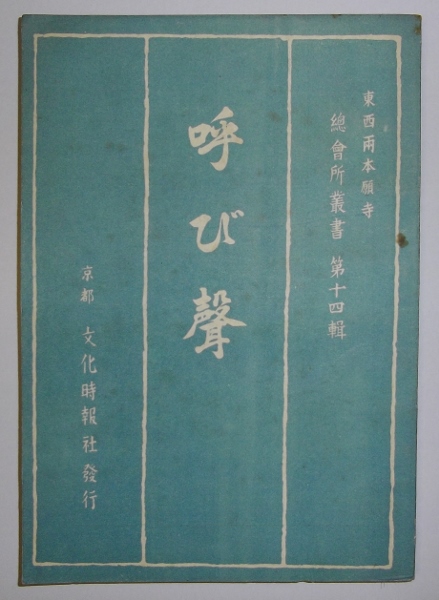 東西兩本願寺
總會所叢書 第十四輯
呼び聲
京都 文化時報社發行